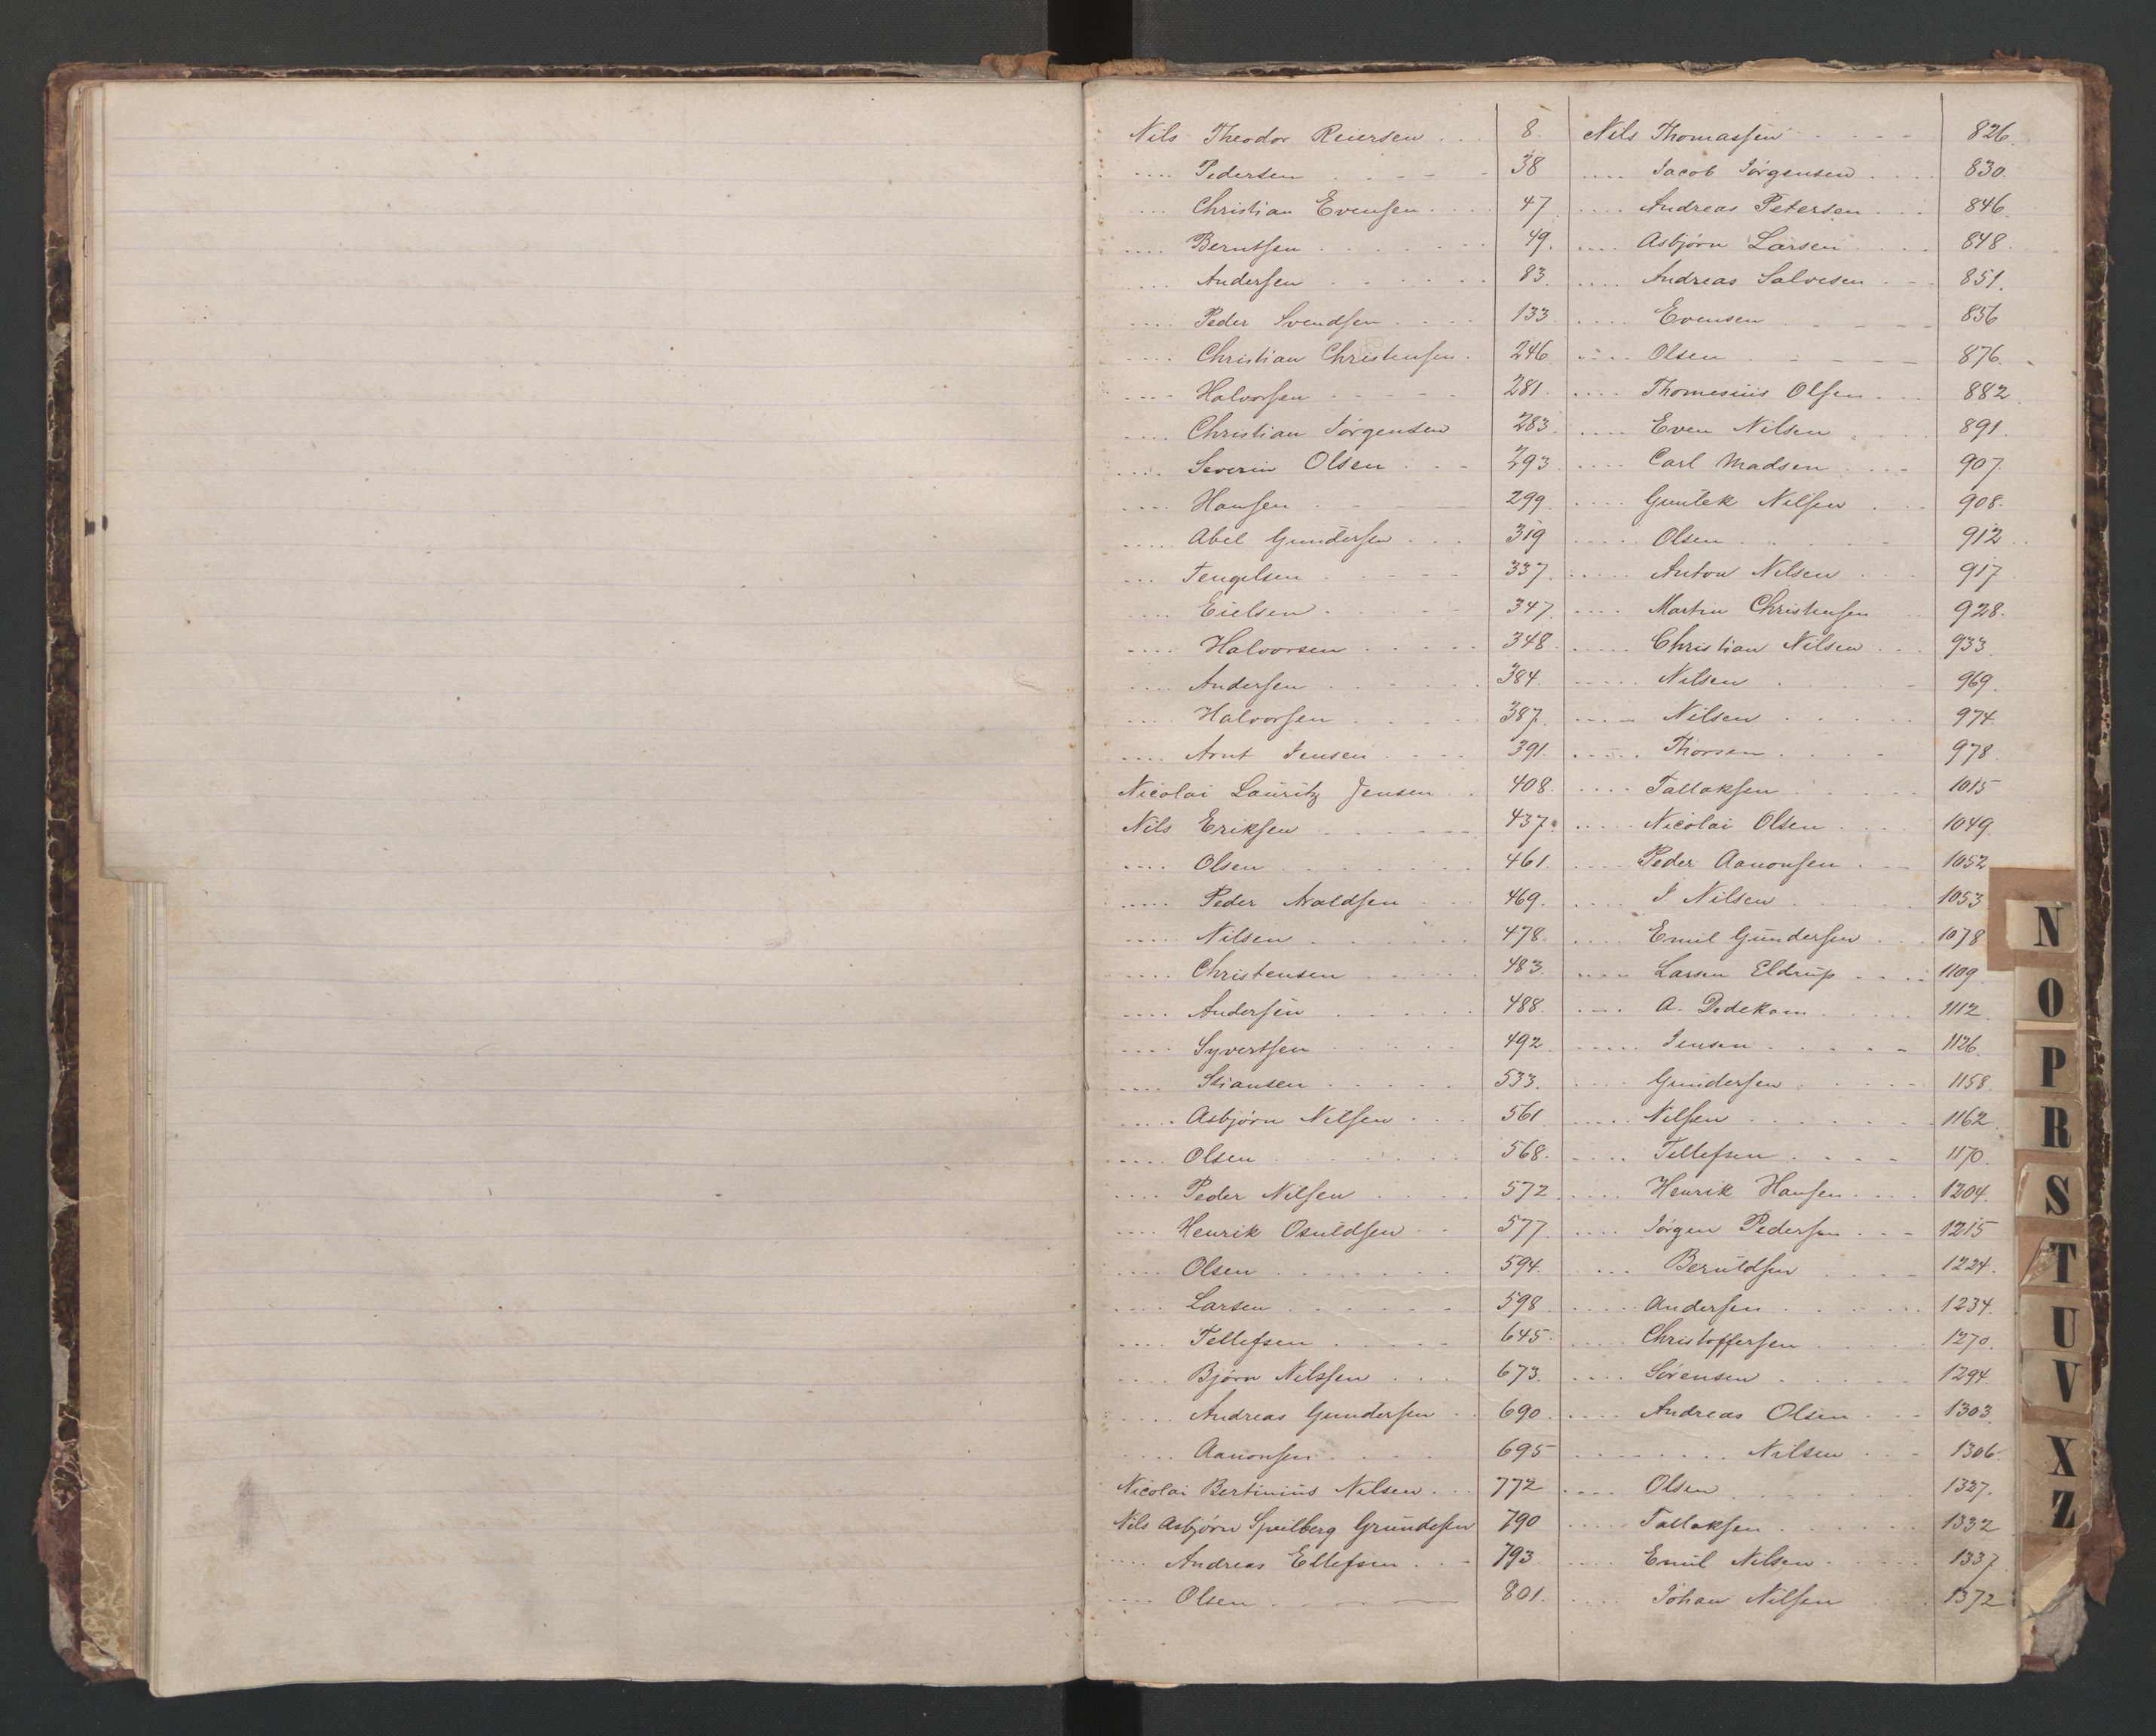 Nils Theodor Reiersen . . . 8.
.... Pedersen . . . . - 38
.... Christian Evensen . . . 47
.... Berntsen . . . . . 49.
.... Andersen . . . . . 83.
.... Peder Svendsen . . . . 133
.... Christian Christensen . 246
.... Halvorsen - - - - - 281.
.... Christian Jørgensen 283.
.... Severin Olsen . . - 293
.... Hansen . - - - 299.
.... Abel Gundersen . . . 319
.... Tengelsen . . - - - 337.
.... Eielsen . . . . - 347.
.... Halvorsen . . . . . 348.
.... Andersen . . . . . 384.
.... Halvorsen . . . . 387.
.... Arnt Jensen . . . - 391.
Nicolai Lauritz Jensen . . 408.
Nils Eriksen . . . . . 437.
.... Olsen . . . . . . 461.
.... Peder Avaldsen . . 469.
.... Nilsen . . . . . 478.
.... Christensen . . . . . 483.
.... Andersen . . . . . 488.
.... Syvertsen . . . . 492
.... Stiansen . . . . . 533.
.... Asbjørn Nilsen . . . 561
.... Olsen . . . . . . 568.
.... Peder Nilsen . . . . 572
.... Henrik Osuldsen . - 577.
.... Olsen . . . . . . 594.
.... Larsen . . . . . - 598
.... Tellefsen . . . . . 645.
.... Bjørn Nilssen . . . 673.
.... Andreas Gundersen . . 690.
.... Aanonsen . . . . 695
Nicolai Bertinius Nilsen . . 772
Nils Asbjørn Spilberg Grundesen 790
.... Andreas Ellefsen . . - 793
.... Olsen . - - - 801.
Nils Thomassen . - - - 826.
.... Jacob Jørgensen . . . . 830.
.... Andreas Petersen . . . 846.
.... Asbjørn Larsen . . . . 848.
.... Andreas Salvesen . - - 851.
.... Evensen . . - - - 856
.... Olsen . . - - - 876.
.... Thomesius Olsen . . . 882
.... Even Nilsen . . . . 891.
.... Carl Madsen . . . - 907.
.... Gunlek Nilsen . . . 908.
.... Olsen . . . . . - 912.
.... Anton Nilsen . . . 917
.... Martin Christensen . . 928.
.... Christian Nilsen . . . 933.
.... Nilsen . . . . - 969.
.... Nilsen . . . . . 974.
.... Thorsen . . . . - 978.
.... Tallaksen . . . . . 1015
.... Nicolai Olsen . . . . 1049.
.... Peder Aanonsen . . - 1052
.... J Nilsen . . . . . 1053
.... Emil Gundersen . . . 1078
.... Larsen Eldrup . . . . 1109.
.... A. Dedekam . . . . . 1112.
.... Jensen . . . . . - 1126.
.... Gundersen . . . - - 1158.
.... Nilsen . . . . . . 1162.
.... Tellefsen . . . - - 1170.
.... Henrik Hansen . . . . 1204.
.... Jørgen Pedersen . . - 1215
.... Beruldsen . . . - 1224.
.... Andersen . . . . . . 1234.
.... Christoffersen . . . . . 1270.
.... Sørensen . . . . . . 1294.
.... Andreas Olsen . . - 1303.
. . . . . . . . Nilsen . . - 1306.
.... Olsen . . . . . . 1327.
.... Tallaksen . . . . . . 1332
.... Emil Nilsen . . . . . 1337.
.... Johan Nilsen . . . 1372
N
O
P
R
S
T
U
V
X
Z